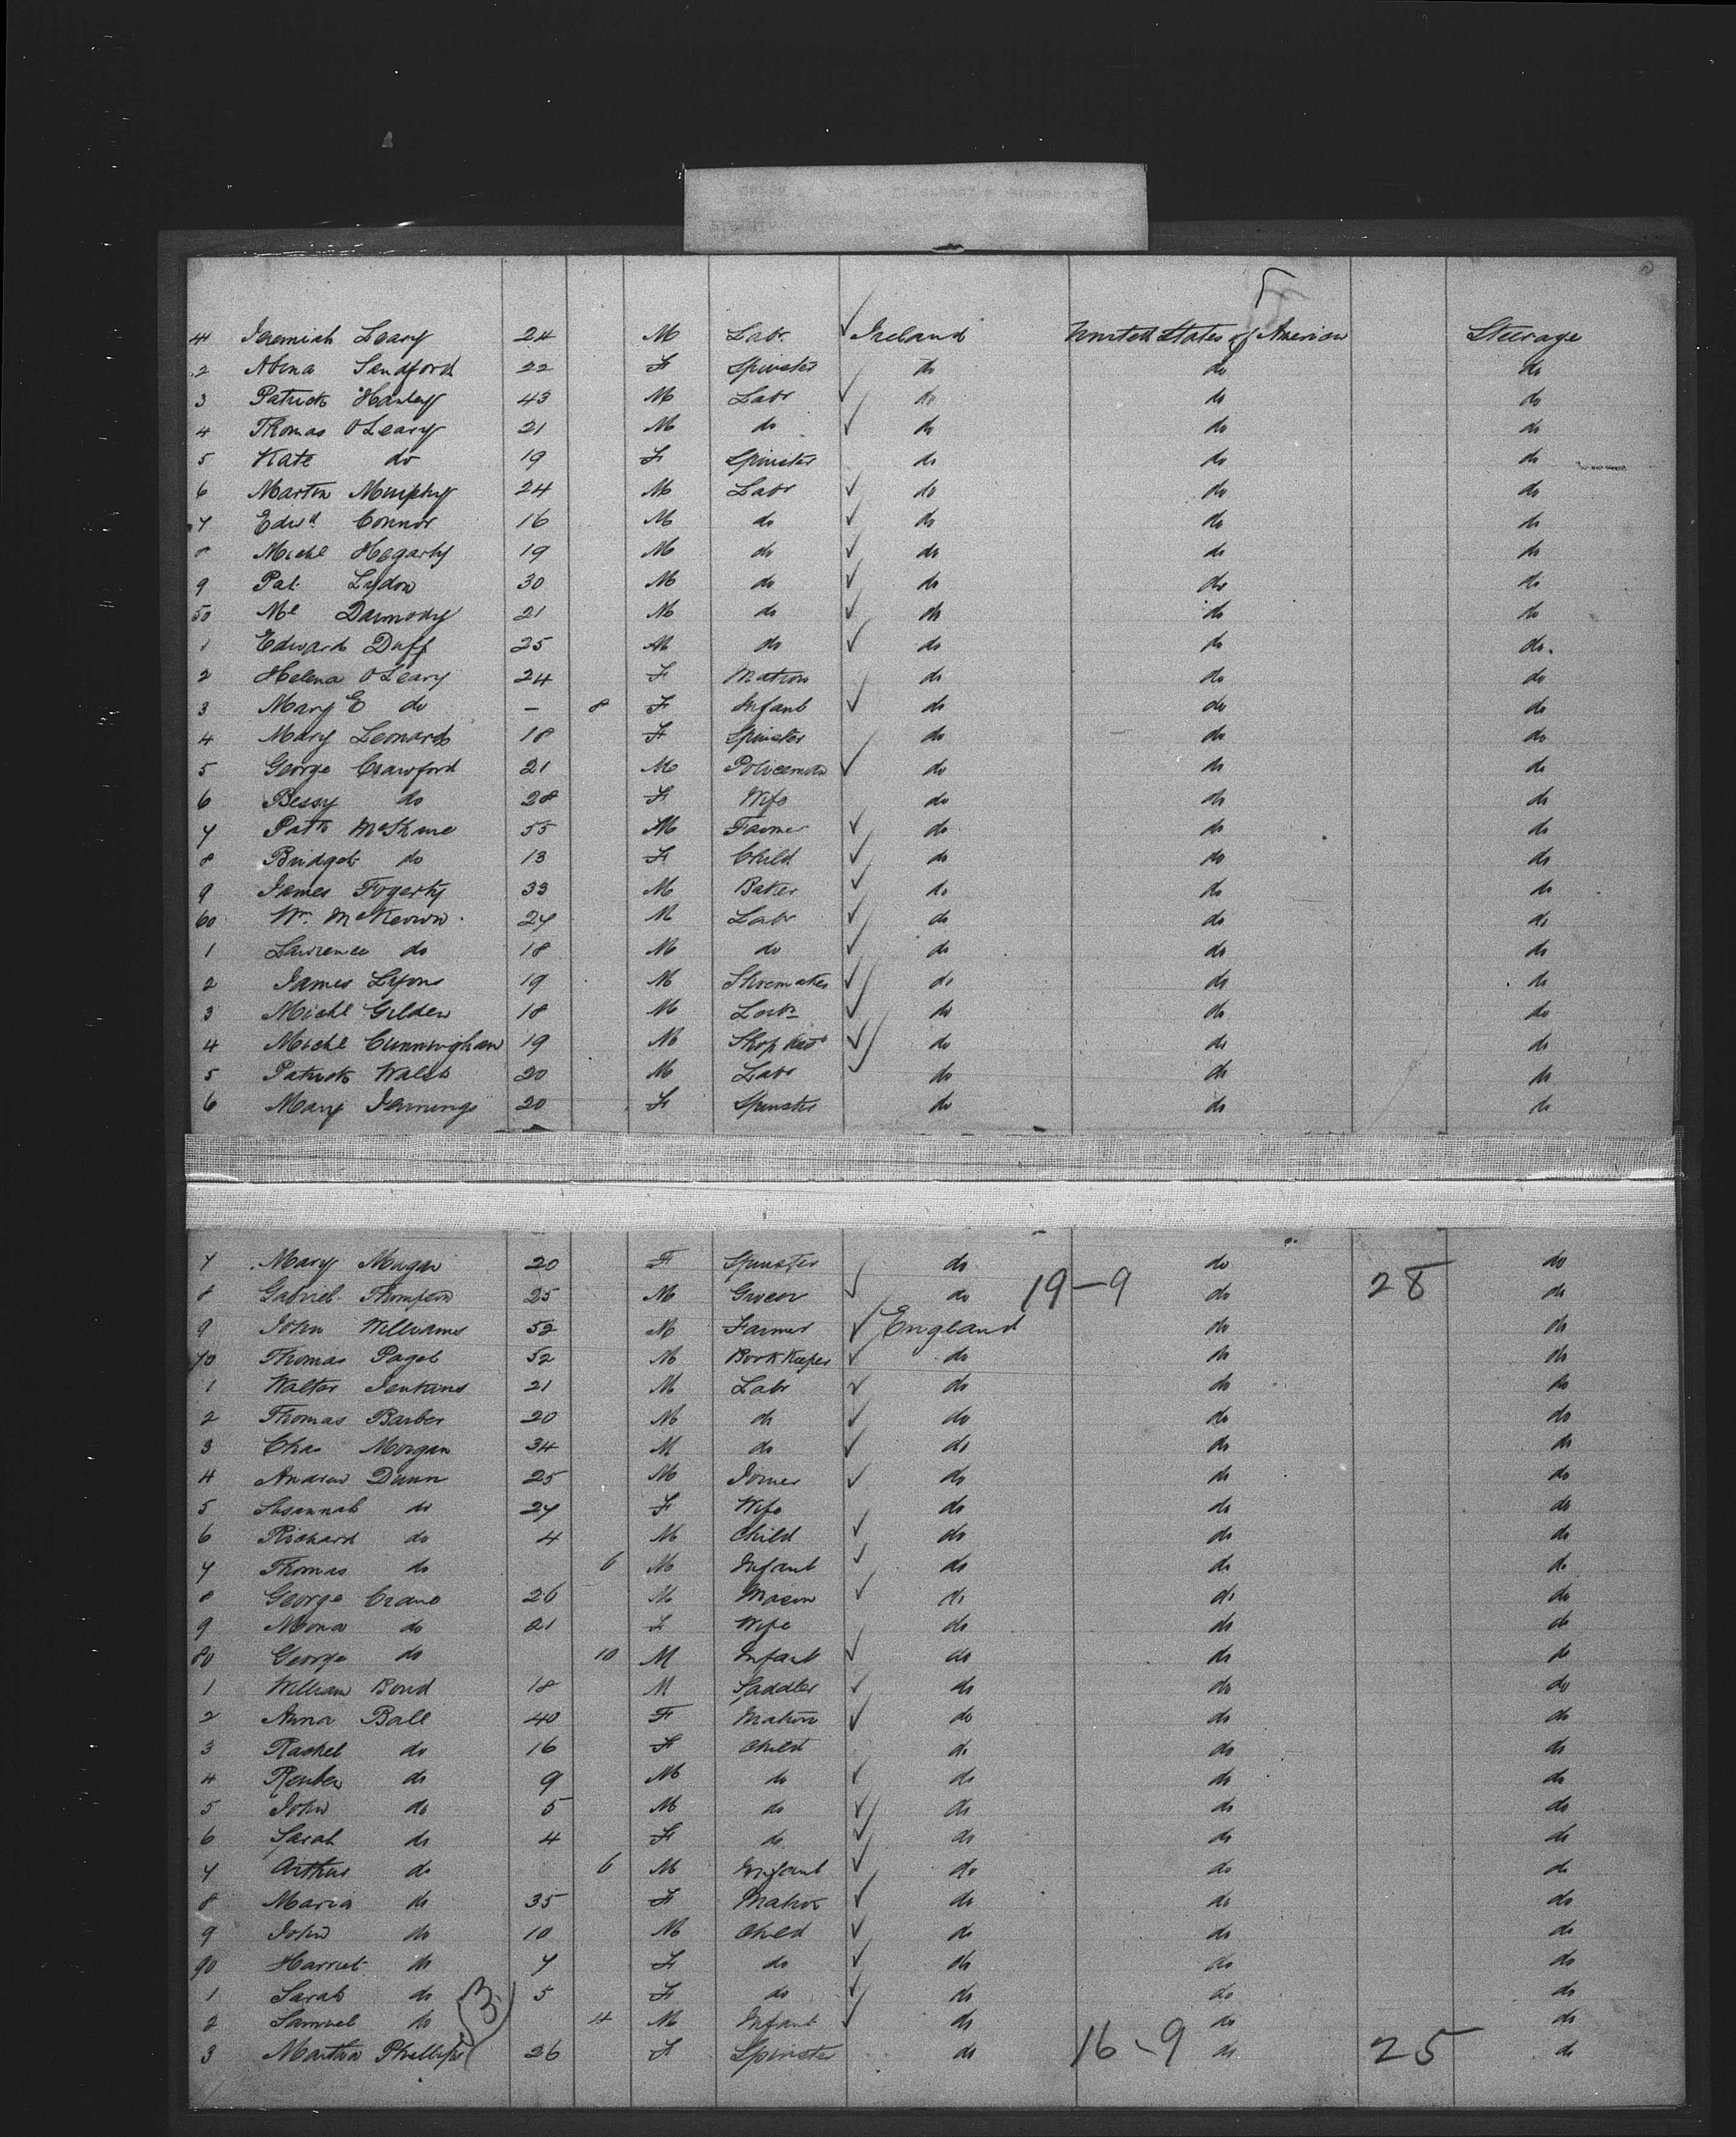 5
41 Jeremiah Leary 24 M Labr Ireland United States of America Steerage
2 Abina Sandford 22 F Spinster do do do
3 Patrick Hanley 43 M Labr do do do
4 Thomas O'Leary 21 M do do do do
5 Kate do 19 F Spinster do do do
6 Martin Murphy 24 M Labr do do do
7 Edwd Connor 16 M do do do do
8 Michl Hegarty 19 M do do do do
9 Pat Lydon 30 M do do do do
50 Ml Darmody 21 M do do do do
1 Edward Duff 25 M do do do do.
2 Helena O'Leary 24 F Matron do do do
3 Mary E do – 8 F Infant do do do
4 Mary Leonard 18 F Spinster do do do
5 George Crawford 21 M Policeman do do do
6 Bessy do 28 F Wife do do do
7 Patk McShane 55 M Farmer do do do
8 Bridget do 13 F Child do do do
9 James Fogerty 33 M Baker do do do
60 Wm McKeown 27 M Labr do do do
1 Lawrence do 18 M do do do do
2 James Lyons 19 M Shoemaker do do do
3 Michl Gilden 18 M Labr do do do
4 Michl Cunningham 19 M do do do
5 Patrick Walsh 20 M Labr do do do
6 Mary Jennings 20 F Spinster do do do
7 Mary Magan 20 F Spinster do do do
8 Gabriel Thompson 25 M Grocer do 19–9 do 28 do
9 John Williams 52 M Farmer England do do
70 Thomas Paget 52 M Book Keeper do do do
1 Walter Jenkins 21 M Labr do do do
2 Thomas Barber 20 M do do do do
3 Chas Morgan 34 M do do do do
4 Andrew Dunn 25 M Joiner do do do
5 Susannah do 27 F Wife do do do
6 Richard do 4 M Child do do do
7 Thomas do 6 M Infant do do do
8 George Crane 26 M Mason do do do
9 Mona do 21 F Wife do do do
80 George do 10 M Infant do do do
1 William Bond 18 M Saddler do do do
2 Anna Ball 40 F Matron do do do
3 Rachel do 16 F Child do do do
4 Reuben do 9 M do do do do
5 John do 5 M do do do do
6 Sarah do 4 F do do do do
7 Arthur do 6 M Infant do do do
8 Maria do 35 F Matron do do do
9 John do 10 M Child do do do
90 Harriet do 7 F do do do do
1 Sarah do 5 F do do do do
2 Samuel do (3) 4 M Infant do do do
3 Martha Phillips 26 F Spinster do 16–9 do 25 do